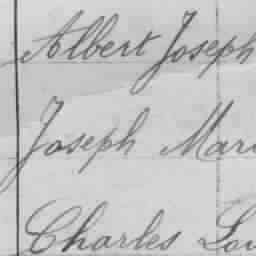 Albert Joseph
Joseph Mari
Charles Lou